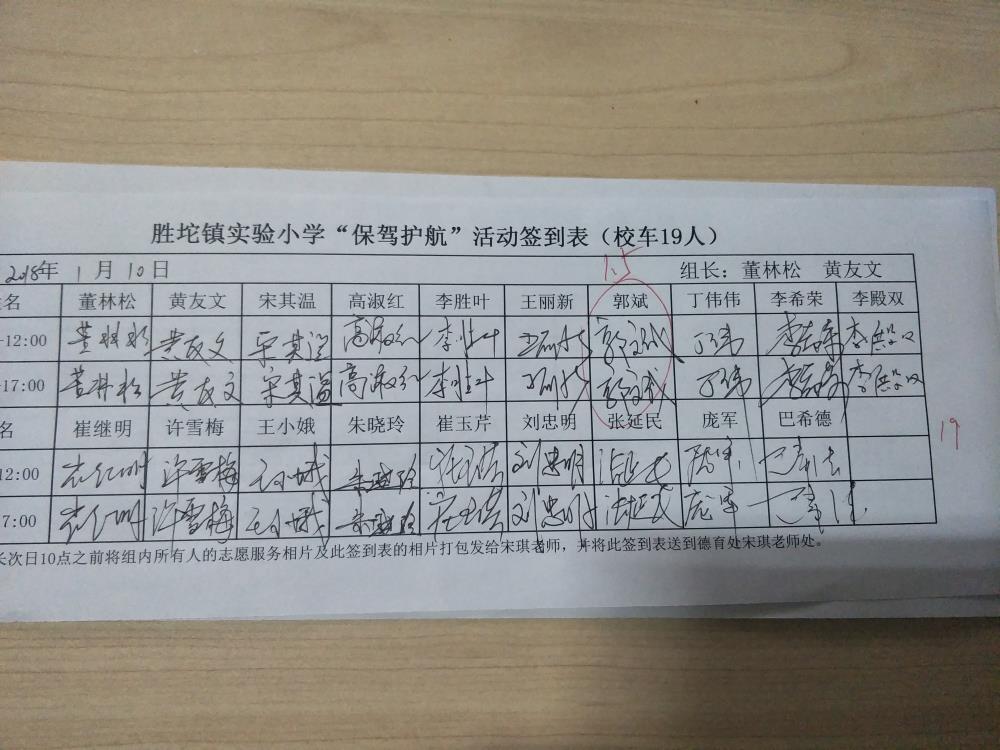 胜坨镇实验小学“保驾护航”活动签到表（校车19人）
1.5
2018年 1月10日 组长：董林松 黄友文
名 董林松 黄友文 宋其温 高淑红 李胜叶 王丽新 郭斌 丁伟伟 李希荣 李殿双
-12:00 董林松 黄友文 宋其温 高淑红 李胜叶 王丽新 丁伟 李希荣 李殿双
-17:00 董林松 黄友文 宋其温 高淑红 李胜叶 王丽新 丁伟 李希荣 李殿双
名 崔继明 许雪梅 王小娥 朱晓玲 崔玉芹 刘忠明 张延民 庞军 巴希德
19
12:00 崔红明 许雪梅 王小娥 朱晓玲 崔玉芹 刘忠明 张延民 庞军 巴希德
7:00 崔红明 许雪梅 王小娥 朱晓玲 崔玉芹 刘忠明 张延民 庞军 巴希德
长次日10点之前将组内所有人的志愿服务相片及此签到表的相片打包发给宋琪老师，并将此签到表送到德育处宋琪老师处。